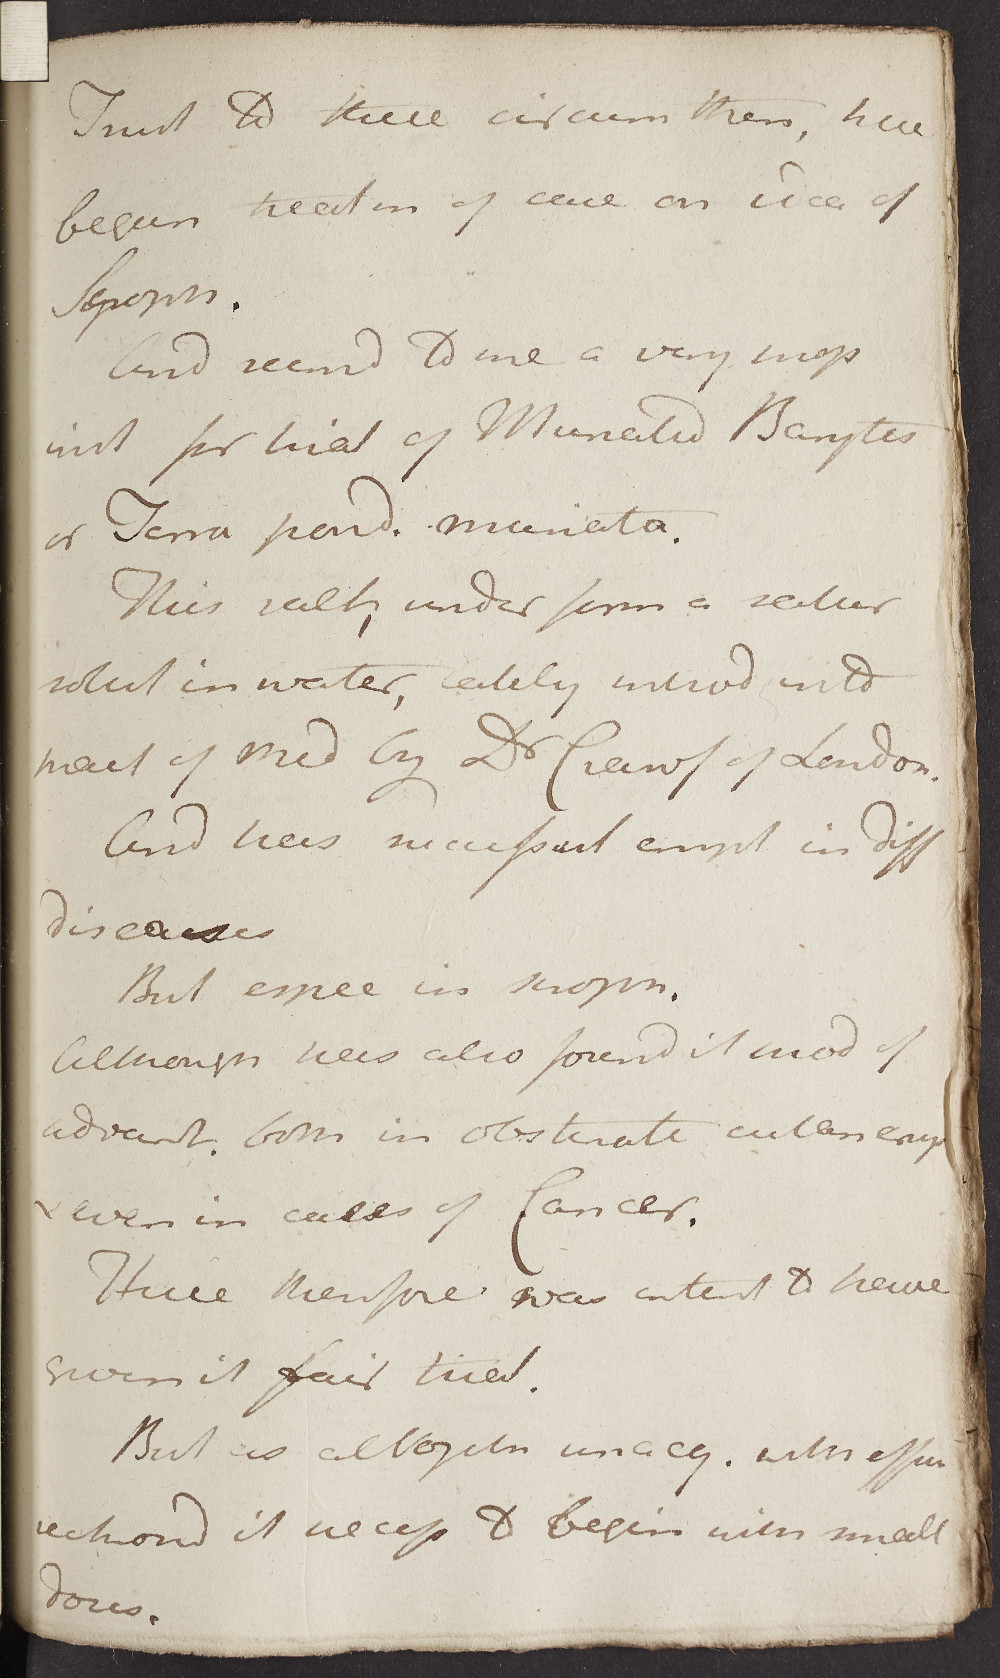 Trust to these circum then, have
begun treatm of case on idea of

And seemd to me a very
inst for trial of Muriated Barytes
or Terra pond. muriata.
This salt, under form a satur
solut in water, lately introd into
pract of Med by Dr Crawf of London.
And has empl in diff
diseases
But espec in
Although has also found it prod of
advant. both in obstinate cutan erup
& even in cases of Cancer.
Here therefore was intent to have
given it fair trial.
But as altogeth unacq. with
reckond it necess to begin with small
doses.